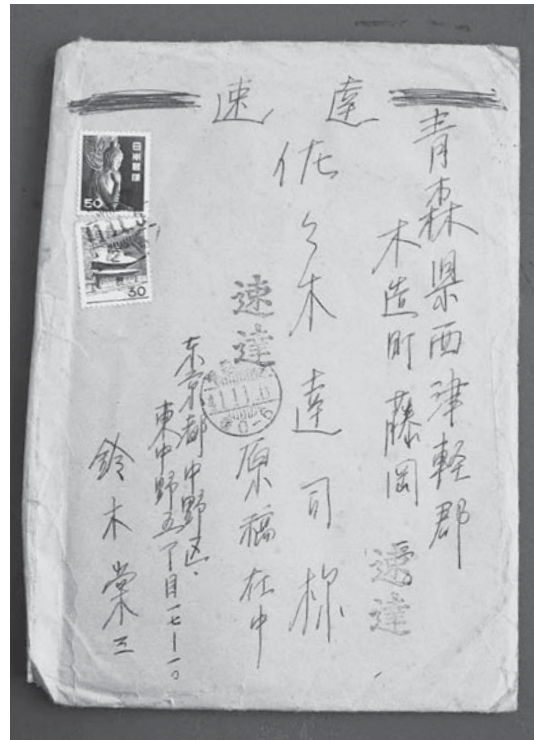 速達
青森県西津軽郡
木造町藤岡
速達
佐々木達司様
原稿在中
速達
東京都中野区
東中野五丁目一七ー一〇
鈴木棠三
日本郵便
50
30